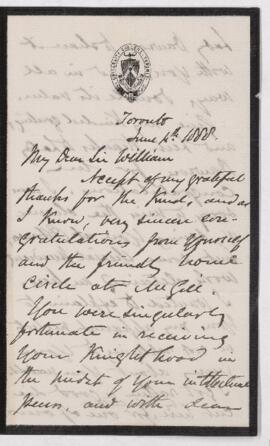 Toronto
June 4th 1888.
My Dear Sir William
Accept of my grateful
thanks for the kind, and as
I know, very sincere con-
gratulations from Yourself
and the friendly home
circle at McGill.
You were singularly
fortunate in receiving
Your Knighthood in
the midst of Your intellectual
peers, and with dear